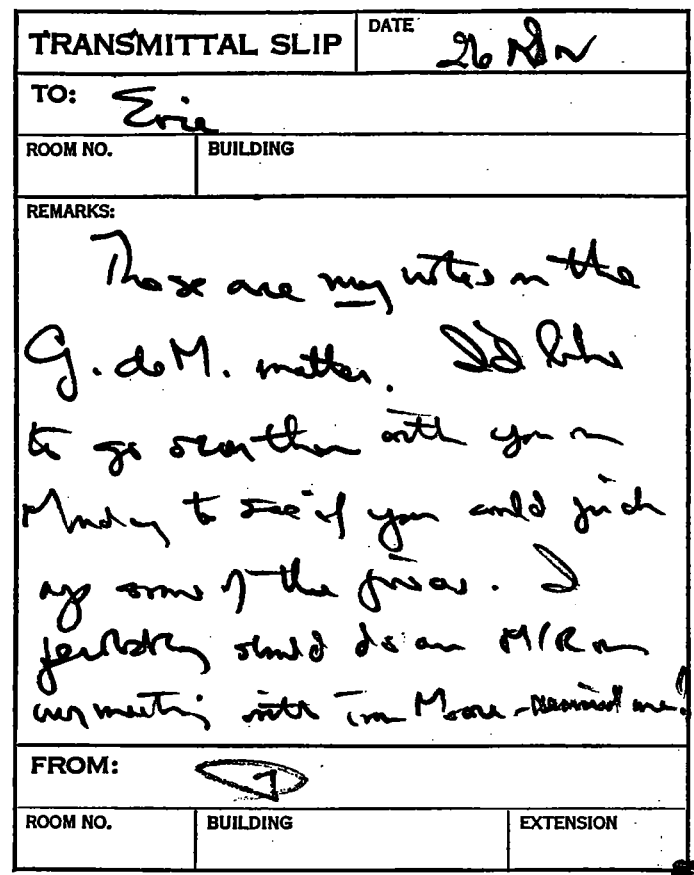 TRANSMITTAL SLIP
DATE 26 Nov
TO: Eric
ROOM NO. BUILDING
REMARKS:
These are my notes on the
G. de M. matter. I'd like
to go over them with you on
Monday to see if you could pick
up some of the pieces. I
probably should do an M/R on
our meeting with Tom Moore - remind me!
FROM:
ROOM NO. BUILDING EXTENSION